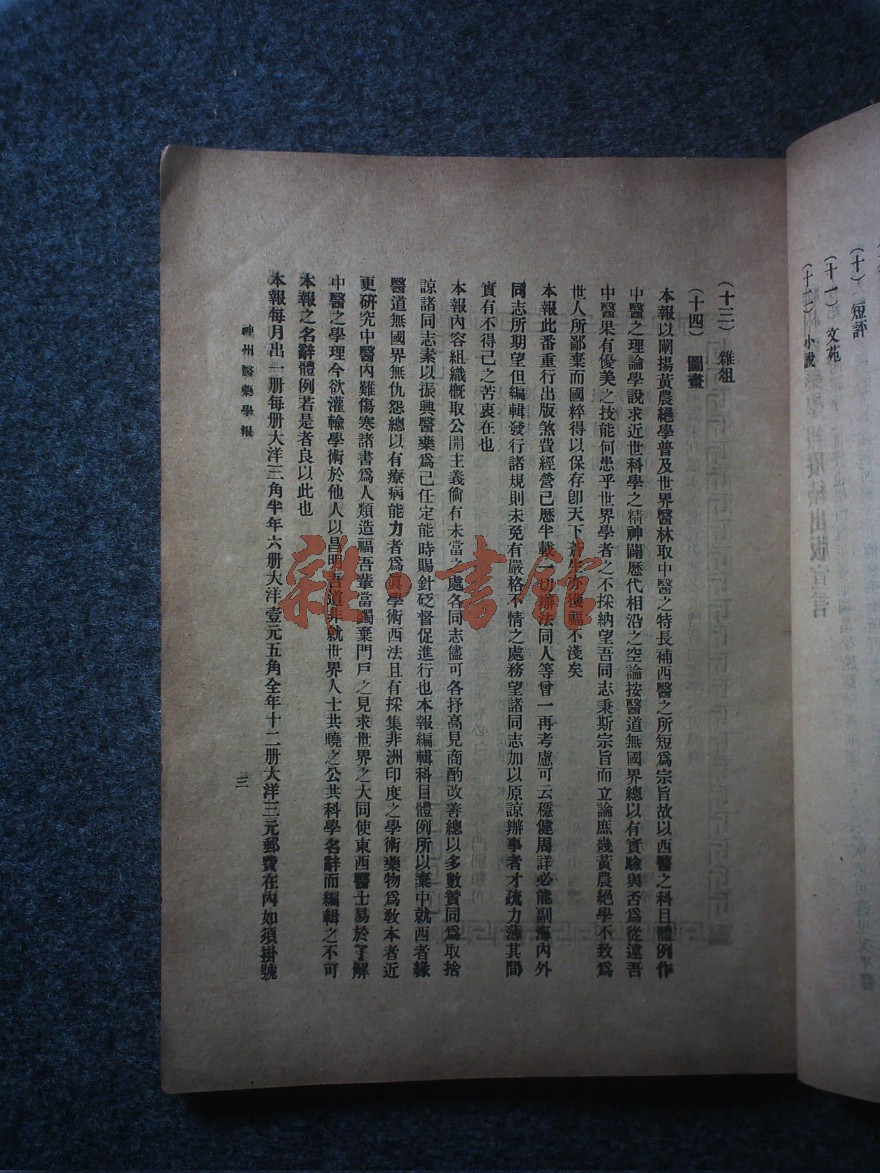 （十三）　雜俎
（十四）　圖畫
本報以闡揚黃農絕學普及世界醫林取中醫之特長補西醫之所短爲宗旨故以西醫之科目體例作
中醫之理論學說求近世科學之精神闢歷代相沿之空論按醫道無國界總以有實驗與否爲從違吾
中醫果有優美之技能何患乎世界學者之不採納望吾同志秉斯宗旨而立論庶幾黃農絕學不致爲
世人所鄙棄而國粹得以保存卽天下蒼生亦獲福不淺矣
本報此番重行出版煞費經營已歷半載一切辦法同人等曾一再考慮可云穩健周詳必能副海內外
同志所期望但編輯發行諸規則未免有嚴格不情之處務望諸同志加以原諒辦事者才疏力薄其間
實有不得已之苦衷在也
本報內容組織槪取公開主義倘有未當之處各同志儘可各抒高見商酌改善總以多數贊同爲取捨
諒諸同志素以振興醫藥爲己任定能時賜針砭督促進行也本報編輯科目體例所以棄中就西者緣
醫道無國界無仇怨總以有療病能力者爲眞學術西法且有採集非洲印度之學術藥物爲敎本者近
更研究中醫內難傷寒諸書爲人類造福吾輩當蠲棄門戶之見求世界之大同使東西醫士易於了解
中醫之學理今欲灌輸學術於他人以昌明吾道非就世界人士共曉之公共科學名辭而編輯之不可
本報之名辭體例若是者良以此也
本報每月出一册每册大洋三角半年六册大洋壹元五角全年十二册大洋三元郵費在內如須掛號
神州醫藥學報
三
（十）　短評
（十一）　文苑
（十二）　小說
雜·書館